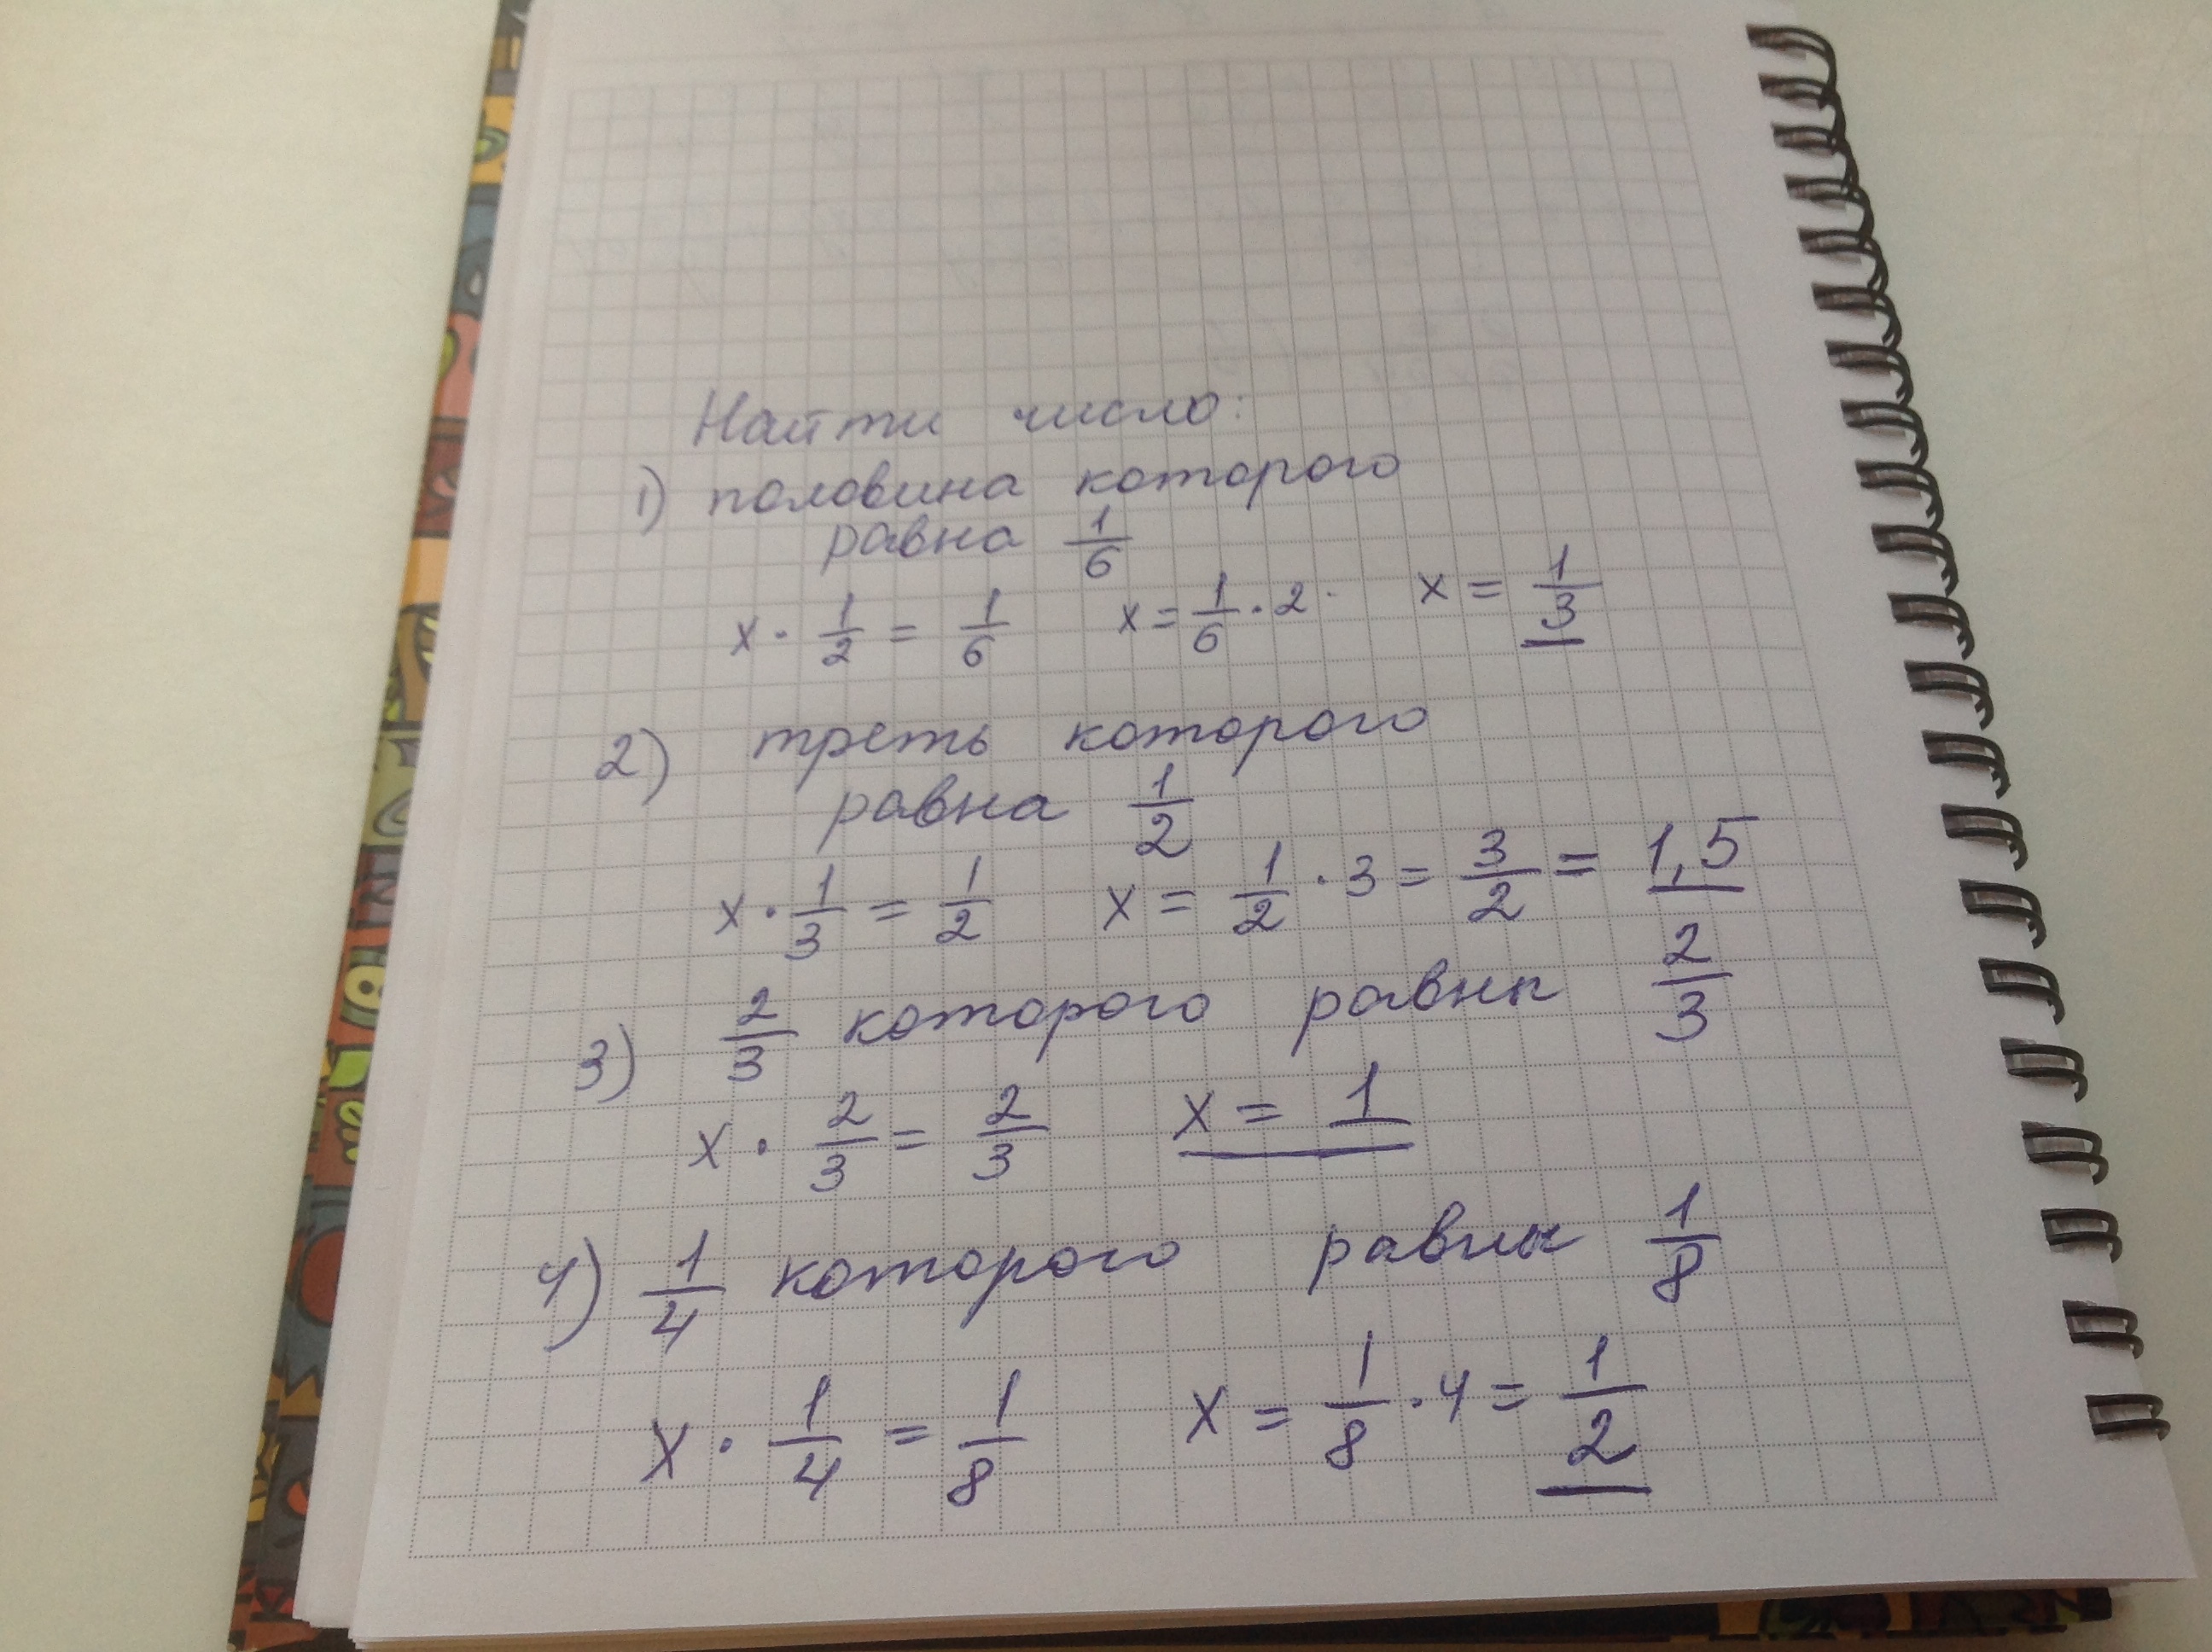 Найти число:
1) половина которого
равна 1/6
x · 1/2 = 1/6   x = 1/6 · 2   x = 1/3
2) треть которого
равна 1/2
x · 1/3 = 1/2   x = 1/2 · 3 = 3/2 = 1,5
3) 2/3 которого равны 2/3
x · 2/3 = 2/3   x = 1
4) 1/4 которого равны 1/8
x · 1/4 = 1/8   x = 1/8 · 4 = 1/2